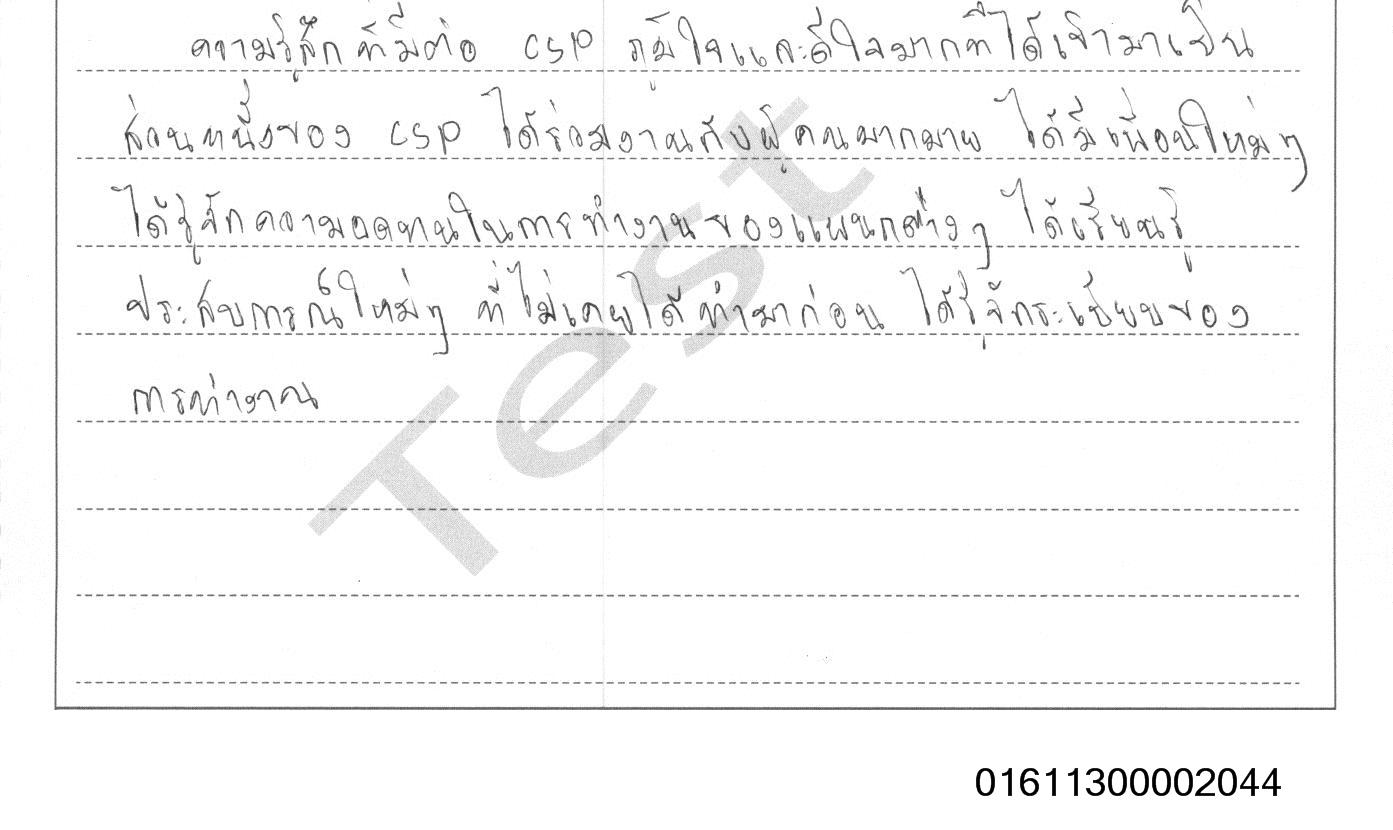 ความรู้สึกที่มีต่อ CSP ภูมิใจและดีใจมากที่ได้เข้ามาเป็น
ส่วนหนึ่งของ CSP ได้ร่วมงานกับผู้คนมากมาย ได้มีเพื่อนใหม่ๆ
ได้รู้จักความอดทนในการทำงานของแผนกต่างๆ ได้เรียนรู้
ประสบการณ์ใหม่ๆ ที่ไม่เคยได้ทำมาก่อน ได้รู้จักระเบียบของ
การทำงาน
Test
01611300002044